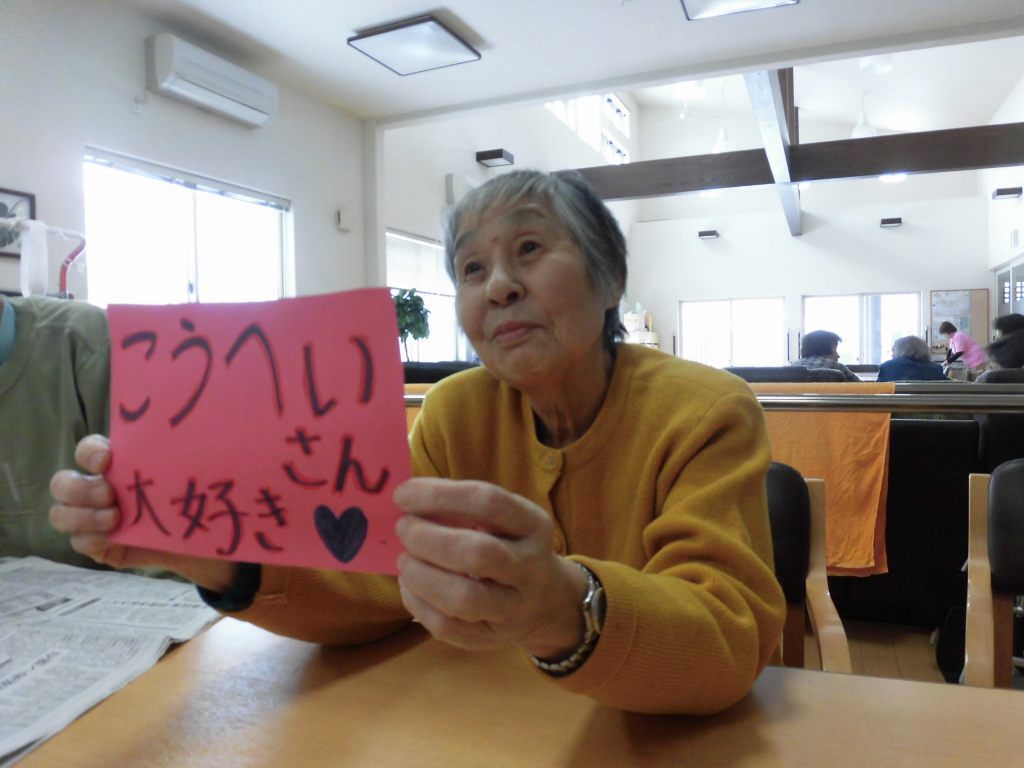 こうへい
さん
大好き♥